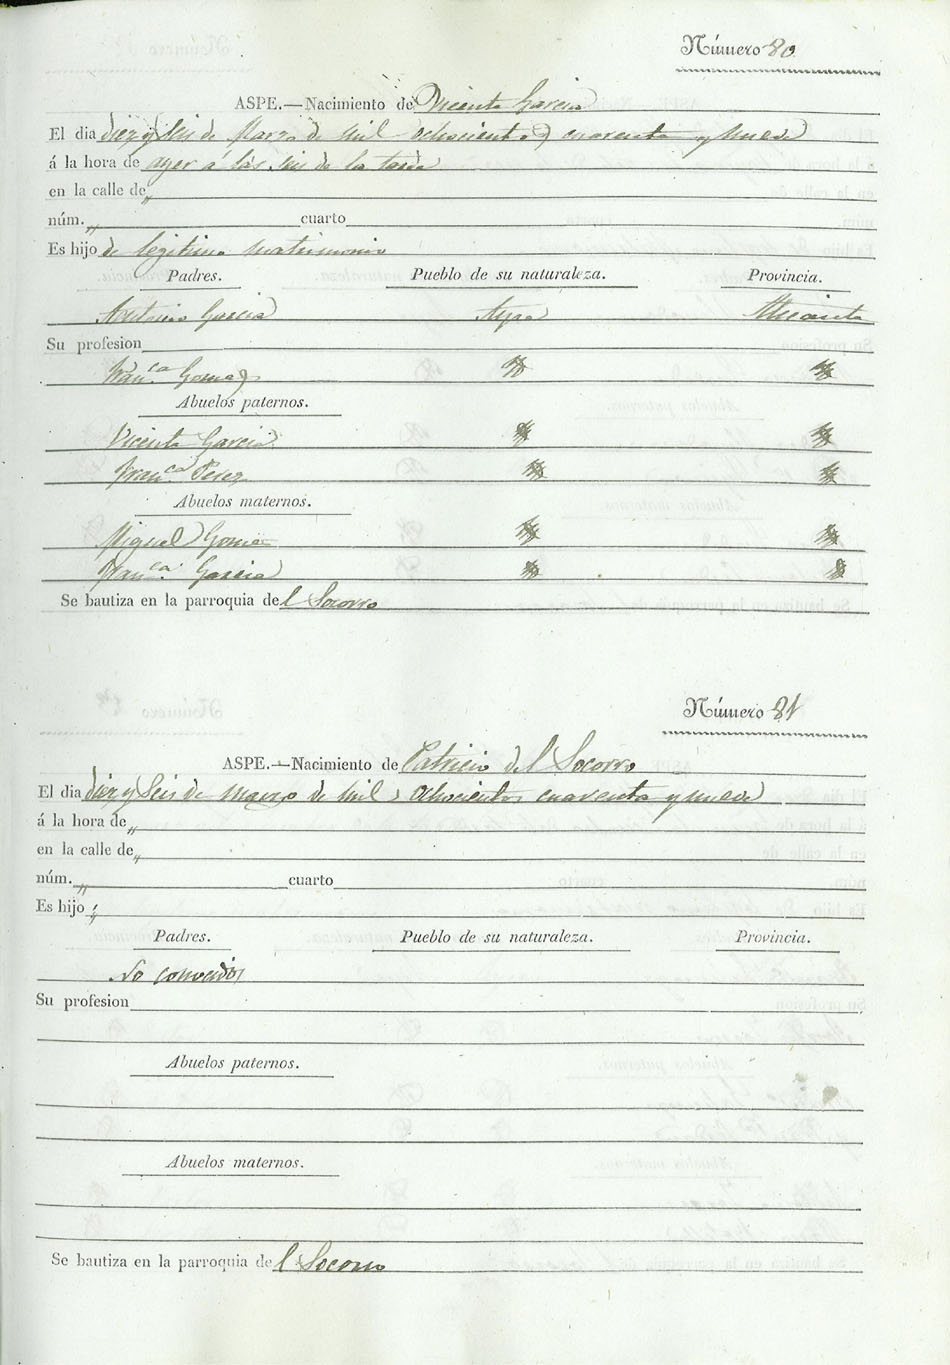 Número 80
ASPE.—Nacimiento de Vicenta Garcia
El dia diez y seis de Marzo de mil ochocientos cuarenta y nueve
á la hora de ayer á las seis de la tarde
en la calle de „
núm. „ cuarto
Es hijo de legitimo matrimonio
Padres. Pueblo de su naturaleza. Provincia.
Antonio Garcia Aspe Alicante
Su profesion
Fran.ca Gomez
Abuelos paternos.
Vicente Garcia
Fran.ca Perez
Abuelos maternos.
Miguel Gomez
Fran.ca Garcia
Se bautiza en la parroquia de l Socorro
Número 81
ASPE.—Nacimiento de Patricio del Socorro
El dia diez y seis de marzo de mil ochocientos cuarenta y nueve
á la hora de „
en la calle de „
núm. „ cuarto
Es hijo „
Padres. Pueblo de su naturaleza. Provincia.
No conocidos
Su profesion
Abuelos paternos.
Abuelos maternos.
Se bautiza en la parroquia de l Socorro